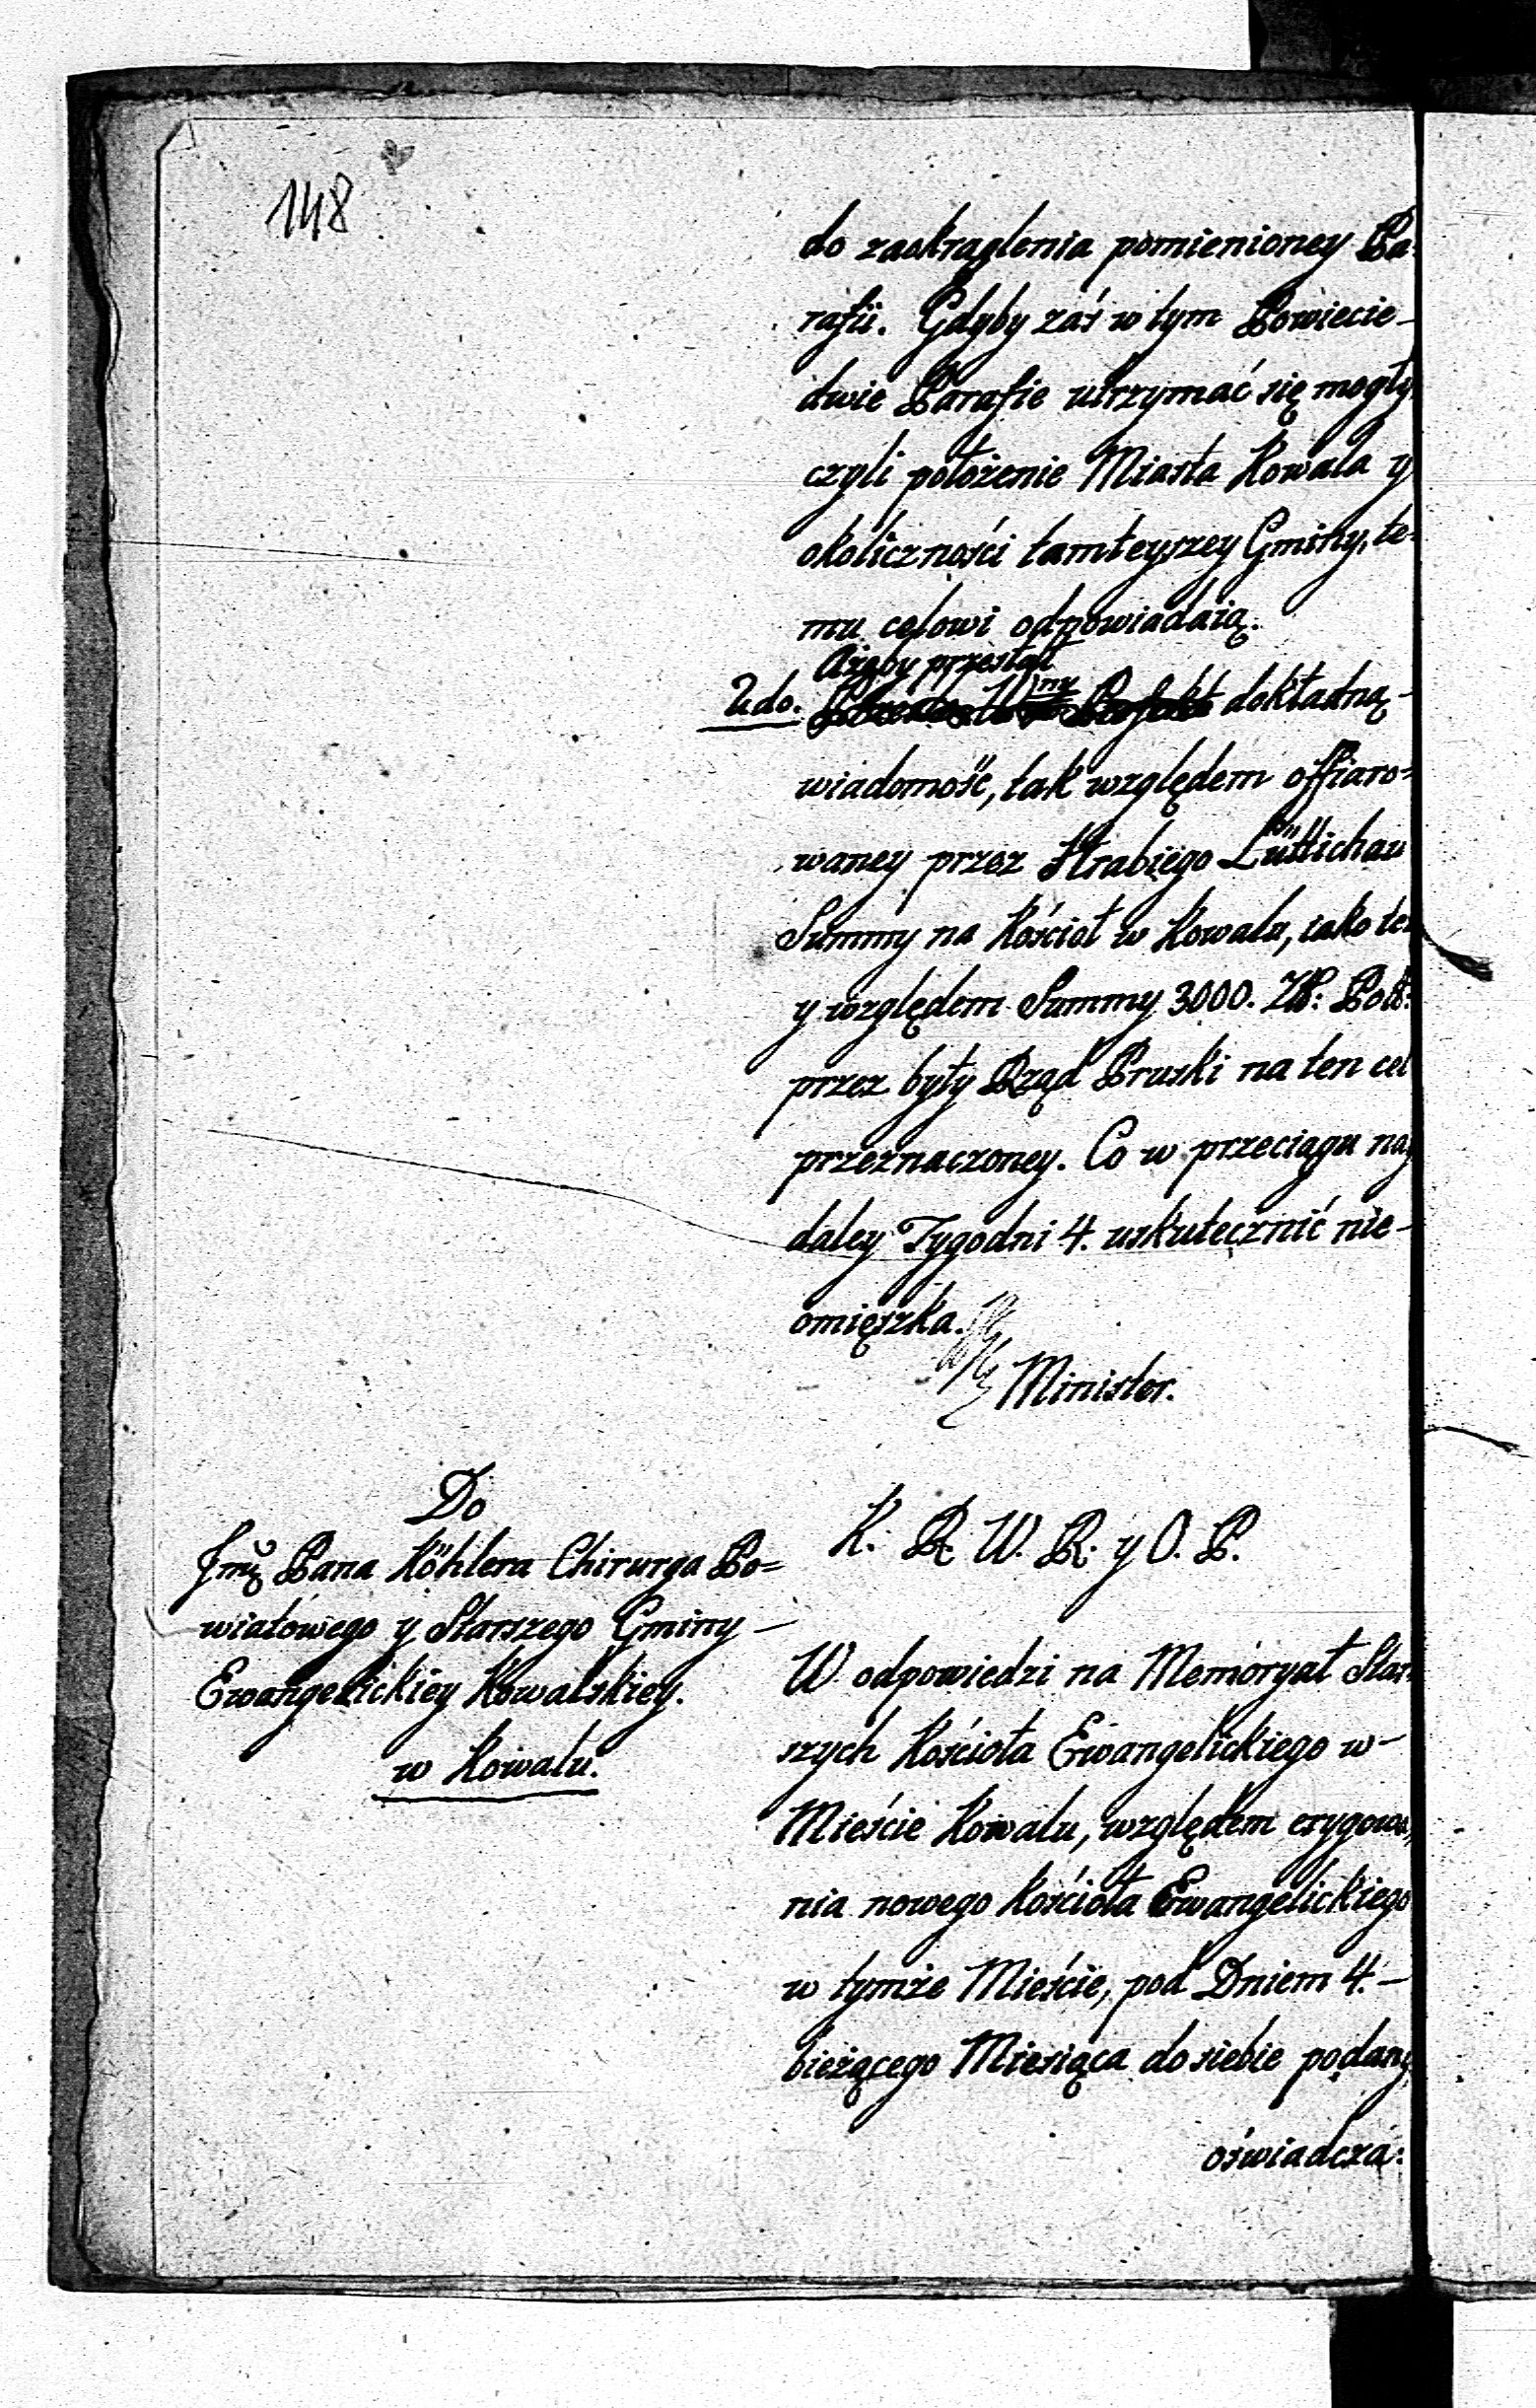 148
do zaokrąglenia pomienioney Pa-
rafii. Gdyby zaś w tym Powiecie-
dwie Parafie utrzymać się mogły
czyli położenie Miasta Kowala y
okoliczności tamteyszey Gminy, te-
mu celowi odpowiadaią.
Ażeby przesłał
2do. dokładną-
wiadomość, tak względem offiaro=
waney przez Hrabiego Lüttichau
Summy na Kościoł w Kowalu, iako też
y względem Summy 3000. Zł: Pol:
przez były Rząd Pruski na ten cel
przeznaczoney. Co w przeciągu nay
daley Tygodni 4. uskutecznić nie-
omięszka.
Minister.
Do
Jmć Pana Köhlera Chirurga Po=
wiatowego y Starszego Gminy-
Ewangelickiey Kowalskiey.
w Kowalu.
K. R. W. R. y O. P.
W odpowiedzi na Memoryał Star
szych Kościoła Ewangelickiego w-
Mieście Kowalu, względem erygowa,
nia nowego Kościoła Ewangelickiego
w tymże Mieście, pod Dniem 4.-
bieżącego Miesiąca do siebie podany
oświadcza: